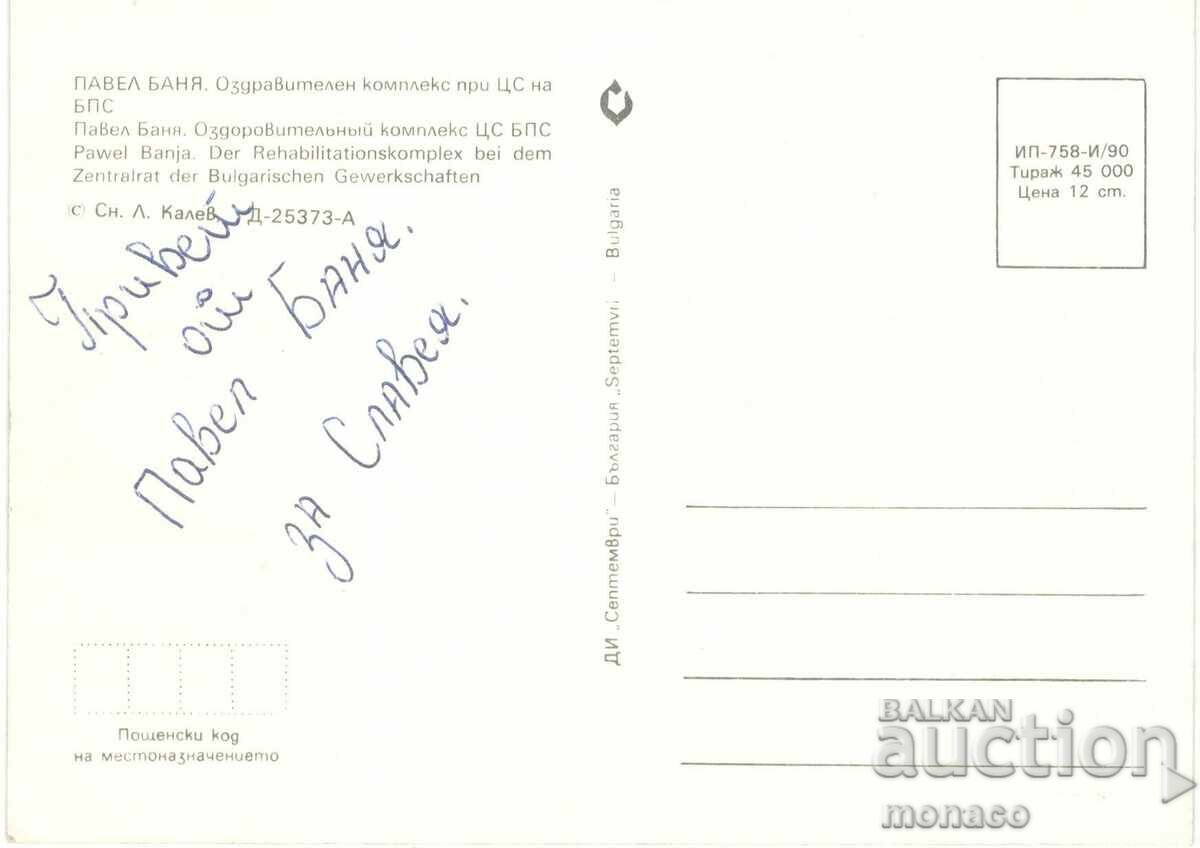 ПАВЕЛ БАНЯ. Оздравителен комплекс при ЦС на
БПС
Павел Баня. Оздоровительный комплекс ЦС БПС
Pawel Banja. Der Rehabilitationskomplex bei dem
Zentralrat der Bulgarischen Gewerkschaften
© Сн. Л. Калев Д-25373-А
Привет
от
Павел Баня.
за Славея.
Пощенски код
на местоназначението
ДИ „Септември" – България „Septemvri" – Bulgaria
ИП-758-И/90
Тираж 45 000
Цена 12 ст.
BALKAN
auction
monaco